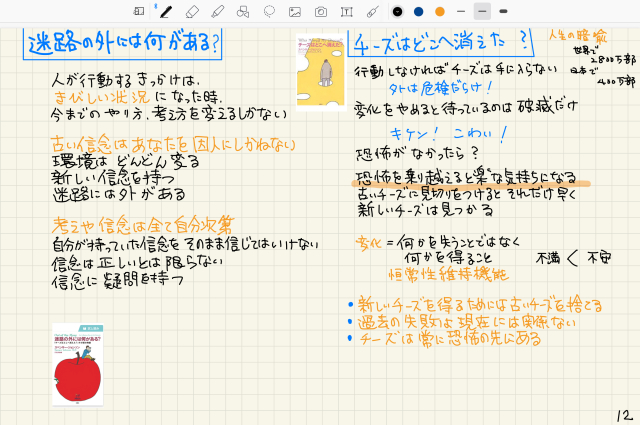 迷路の外には何がある?
人が行動するきっかけは、
きびしい状況になった時、
今までのやり方、考え方を変えるしかない
古い信念はあなたを囚人にしかねない
環境はどんどん変る
新しい信念を持つ
迷路には外がある
考えや信念は全て自分次第
自分が持っていた信念をそのまま信じてはいけない
信念は正しいとは限らない
信念に疑問を持つ
迷路の外には何がある?
チーズはどこへ消えた?
チーズはどこへ消えた?
人生の暗喩
世界で
2800万部
日本で
400万部
行動しなければチーズは手に入らない
外は危険だらけ!
変化をやめると待っているのは破滅だけ
キケン! こわい!
恐怖がなかったら?
恐怖を乗り越えると楽な気持ちになる
古いチーズに見切りをつけるとそれだけ早く
新しいチーズは見つかる
変化=何かを失うことではなく
何かを得ること
不満 < 不安
恒常性維持機能
・新しいチーズを得るためには古いチーズを捨てる
・過去の失敗は現在には関係ない
・チーズは常に恐怖の先にある
12